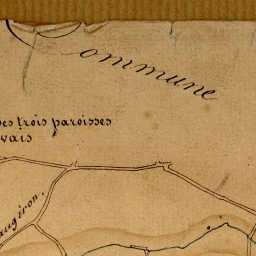 ommune
des trois paroisses
vais
augiron.